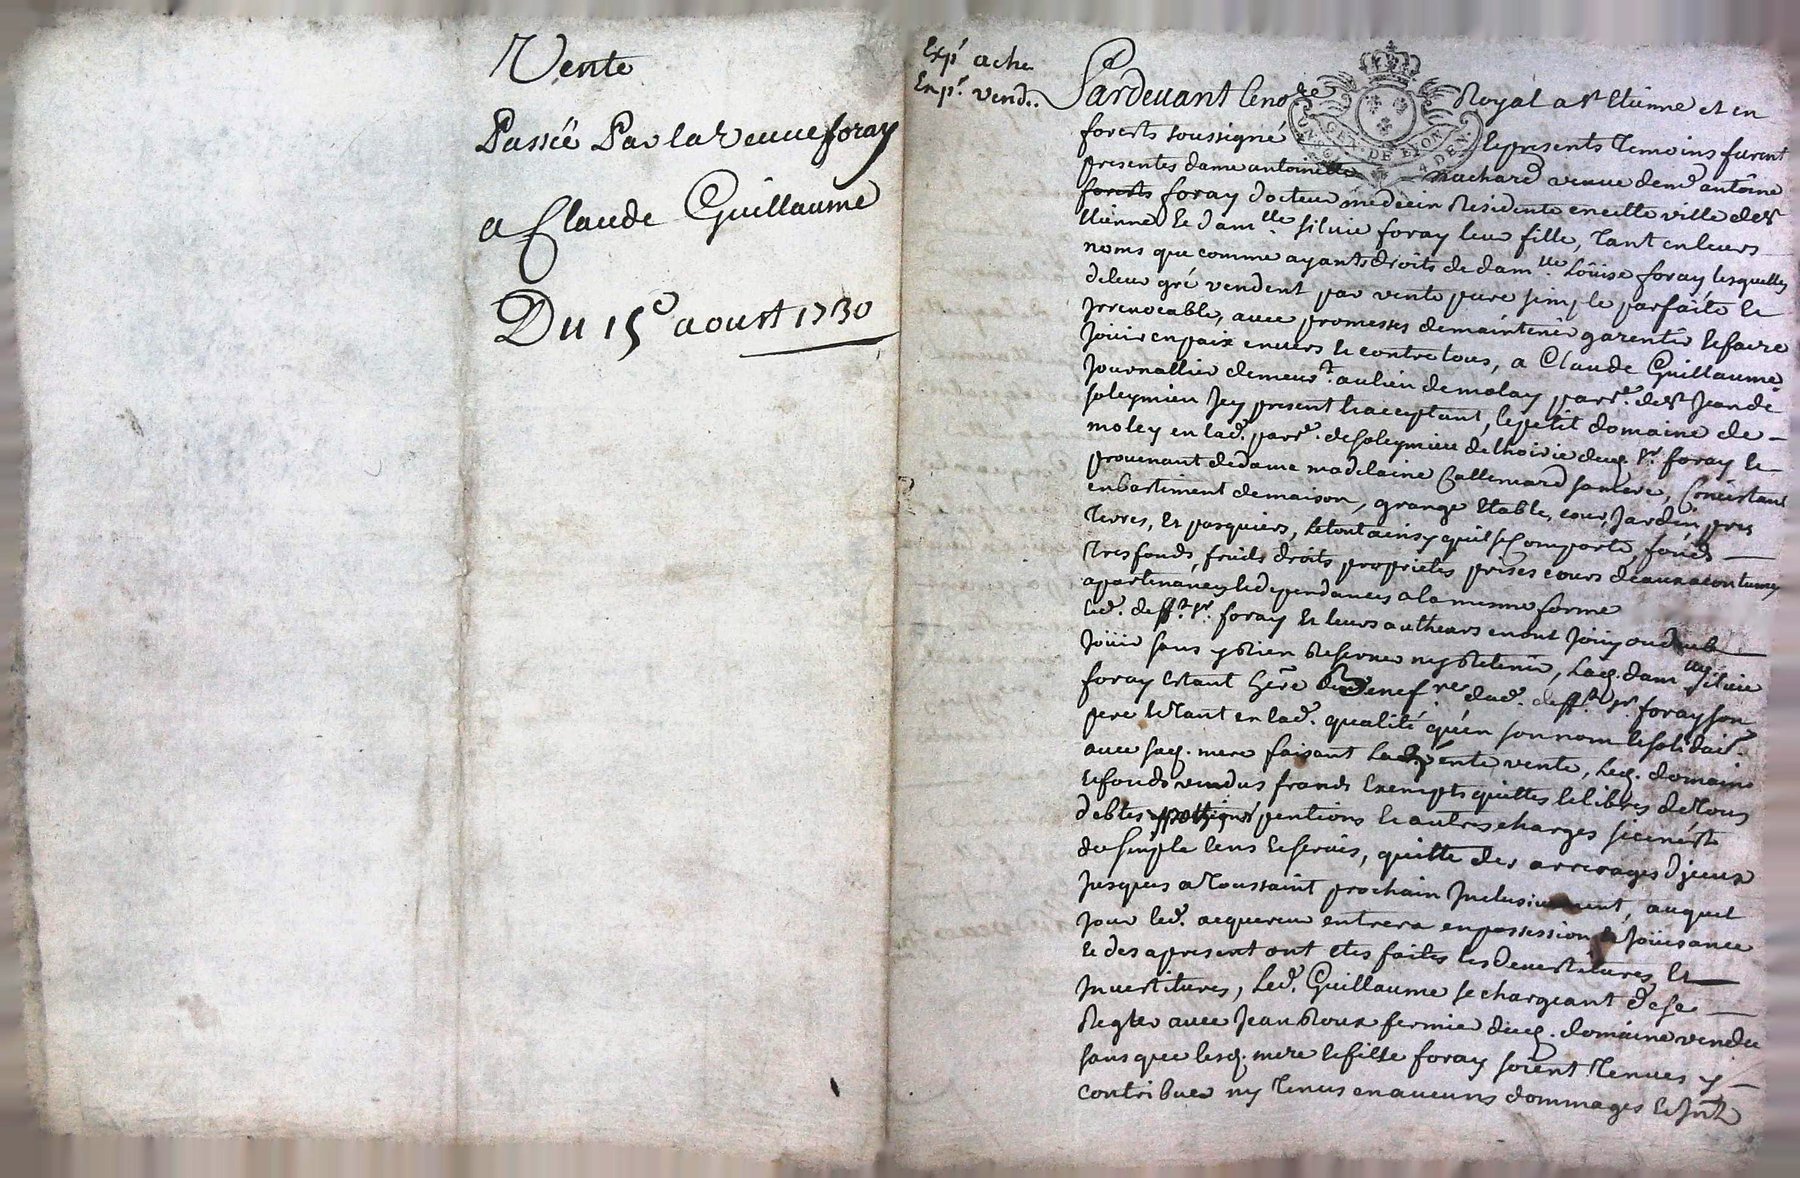 Vente
Passée Par la Veuve foray
a Claude Guillaume
Du 15e aoust 1730
Expé ache
Expé. vend.
Pardevant le no.re Royal a st Etienne et en
forests soussigné & presents temoins furent
GEN. DE LYON
presentes dame antoinette machard veuve de mr antoine
forests foray docteur medecin Residente en cette ville de st
Etienne & dam.lle silvie foray leur fille, tant en leurs
noms que comme ayants droits de dam.lle Loüise foray lesquelles
de leur gré vendent par vente pure simple parfaite &
Irrevocable, avec promesses de maintenir garentir & faire
Joüir en paix envers & contre tous, a Claude Guillaume
Journallier demeurt. au lieu de molay parre. de st Jean de
soleymieu Icy present & acceptant, le petit domaine de
moley en lad. parre. de soleymieu de l'hoirie dud. sr. foray &
provenant de dame madelaine sa mere, Consistant
en bastiment de maison, grange Etable, cour, Jardin, pres
Terres, & pasquiers, le tout ainsy quil se Comporte, fonds
Tresfonds, fruits, droits proprietés prises cours d'eaux acoutumez
apartenances & dependances a la mesme forme
led. defft. sr. foray & leurs autheurs en ont Joüy ou dub
Joüir sans y Rien Reserver ny Retenir, Lad. dam.lle silvie
foray estant here benefre dud. defft. sr foray son
pere & Tant en lad. qualité qu'en son nom & solidair.
avec sad. mere faisant La vente, Led. domaine
& fonds vendus francs Exempts quittes & libres de Tous
debtes pentions & autres charges si ce n'est
du simple Cens & servis, quitte des arrerages d'jceux
Jusques a Toussaint prochain Inclusivement, auquel
Jour led. acquereur entrera en possession & Joüissance
& des apresent ont etes faites les devestitures &
Investitures, Led. Guillaume se chargeant de se
Regler avec Jean Roux fermier dud. domaine vendu
sans que lesd. mere & fille foray soient Tenues y
contribuer ny Tenus en aucuns dommages & Int